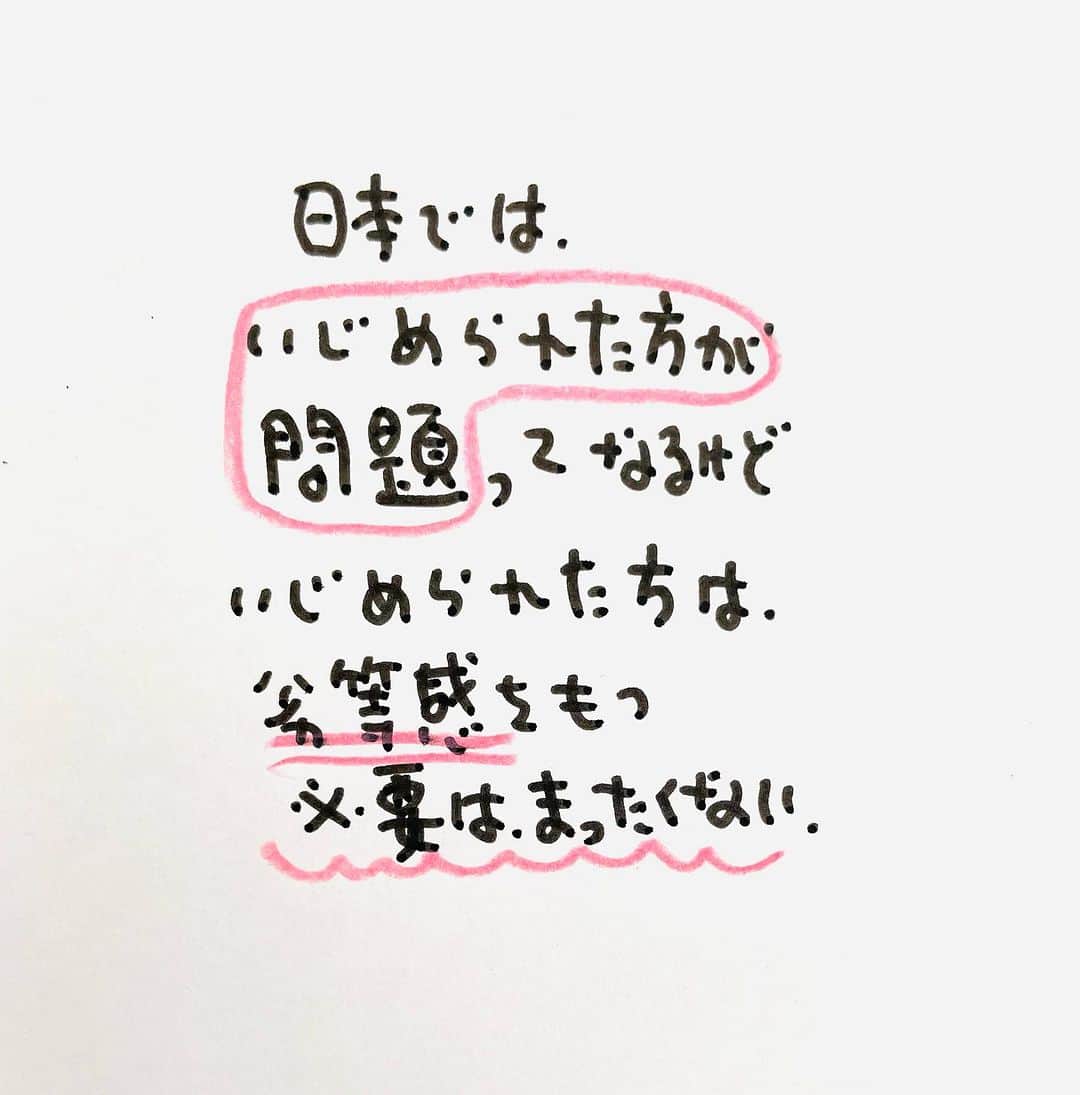 日本では.
いじめられた方が
問題ってなるけど
いじめられたちは.
劣等感をもつ
必要は.まったくない.